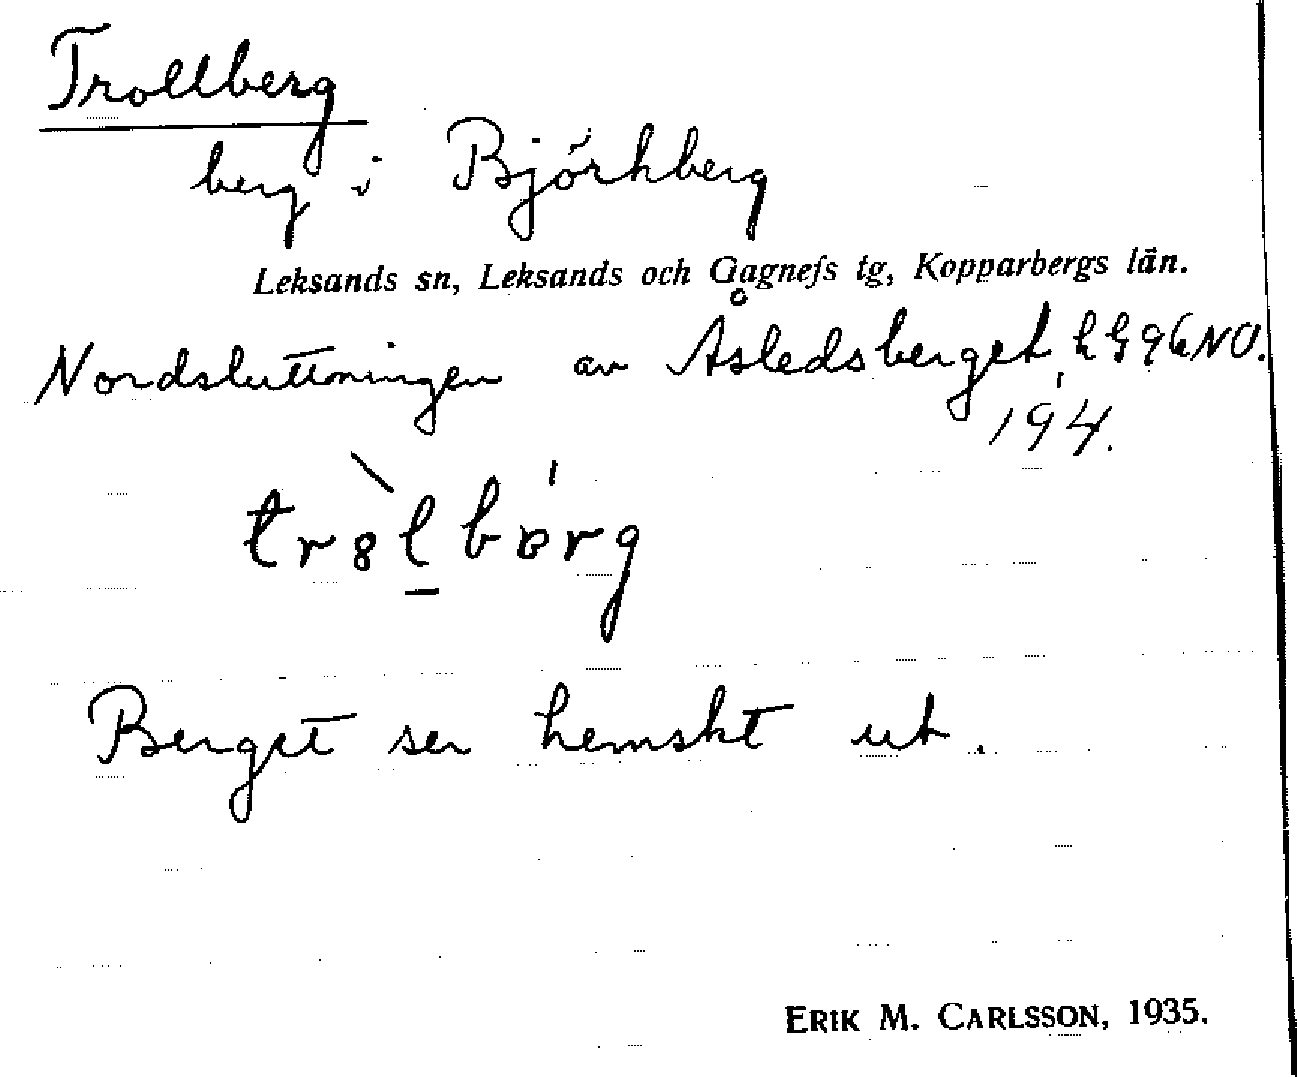 Trollberg
berg i Björkberg
Leksands sn, Leksands och Gagnefs tg, Kopparbergs län.
Nordsluttningen av Åsledsberget, NO.
194.
Berget ser hemskt ut.
ERIK M. CARLSSON, 1935.